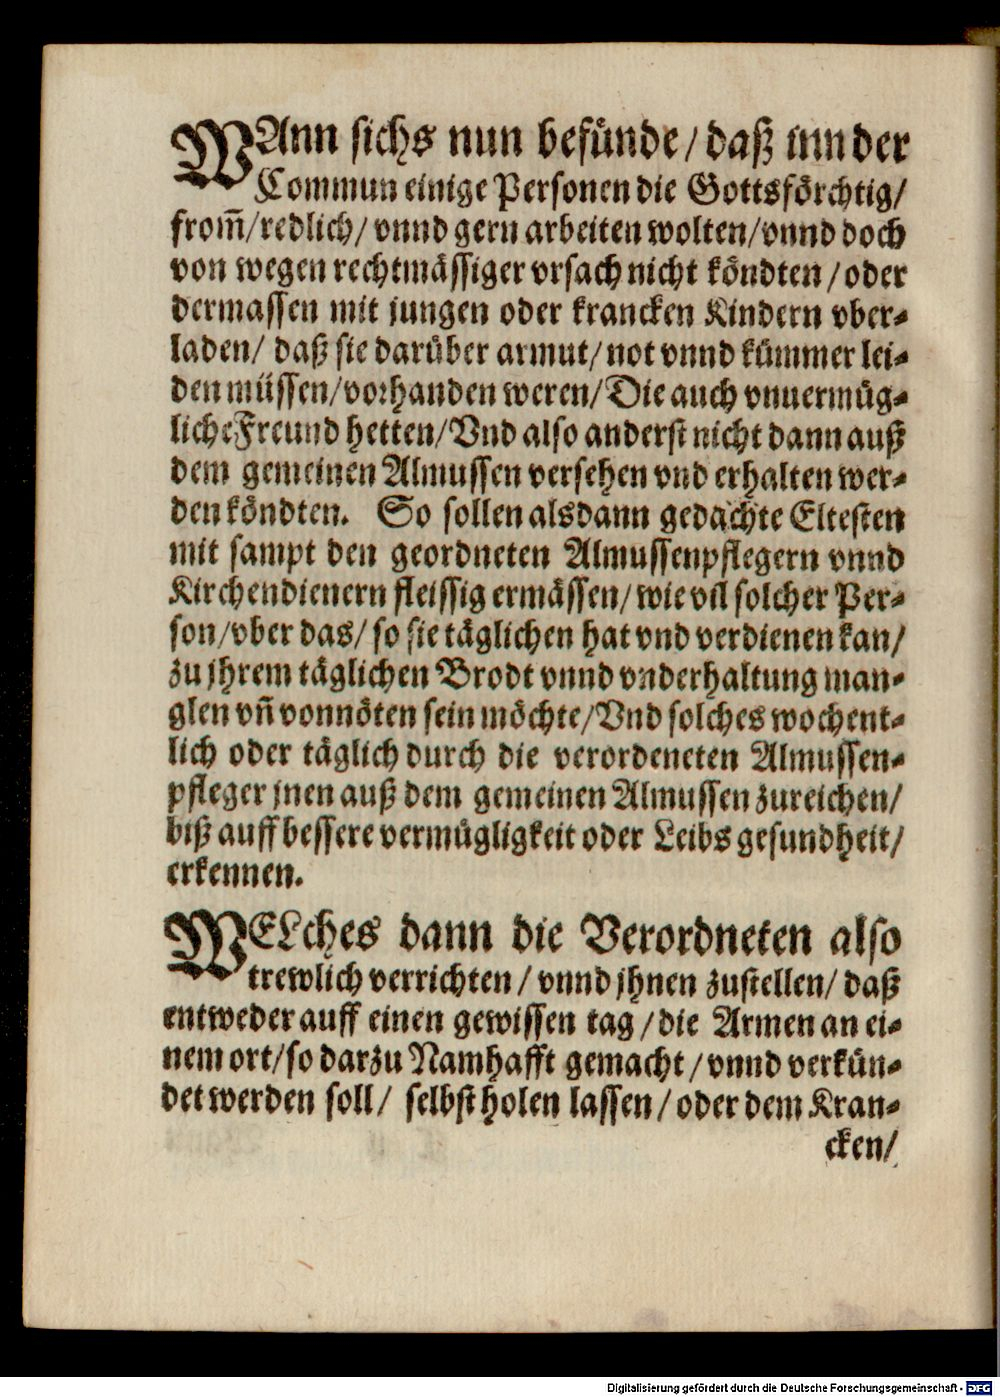 WAnn sichs nun befünde/ daß inn der
Commun einige Personen die Gottsförchtig/
from̃/ redlich/ vnnd gern arbeiten wolten/ vnnd doch
von wegen rechtmässiger vrsach nicht köndten/ oder
dermassen mit jungen oder krancken Kindern vber-
laden/ daß sie darüber armut/ not vnnd kümmer lei-
den müssen/ vorhanden weren/ Die auch vnuermüg-
liche Freund hetten/ Vnd also anderst nicht dann auß
dem gemeinen Almussen versehen vnd erhalten wer-
den köndten. So sollen alsdann gedachte Eltesten
mit sampt den geordneten Almussenpflegern vnnd
Kirchendienern fleissig ermässen/ wie vil solcher Per-
son/ vber das/ so sie täglichen hat vnd verdienen kan/
zu jhrem täglichen Brodt vnnd vnderhaltung man-
glen vñ vonnöten sein möchte/ Vnd solches wochent-
lich oder täglich durch die verordeneten Almussen-
pfleger jnen auß dem gemeinen Almussen zureichen/
biß auff bessere vermügligkeit oder Leibs gesundheit/
erkennen.
WELches dann die Verordneten also
trewlich verrichten/ vnnd jhnen zustellen/ daß
entweder auff einen gewissen tag/ die Armen an ei-
nem ort/ so darzu Namhafft gemacht/ vnnd verkün-
det werden soll/ selbst holen lassen/ oder dem Kran-
cken/
Digitalisierung gefördert durch die Deutsche Forschungsgemeinschaft - DFG